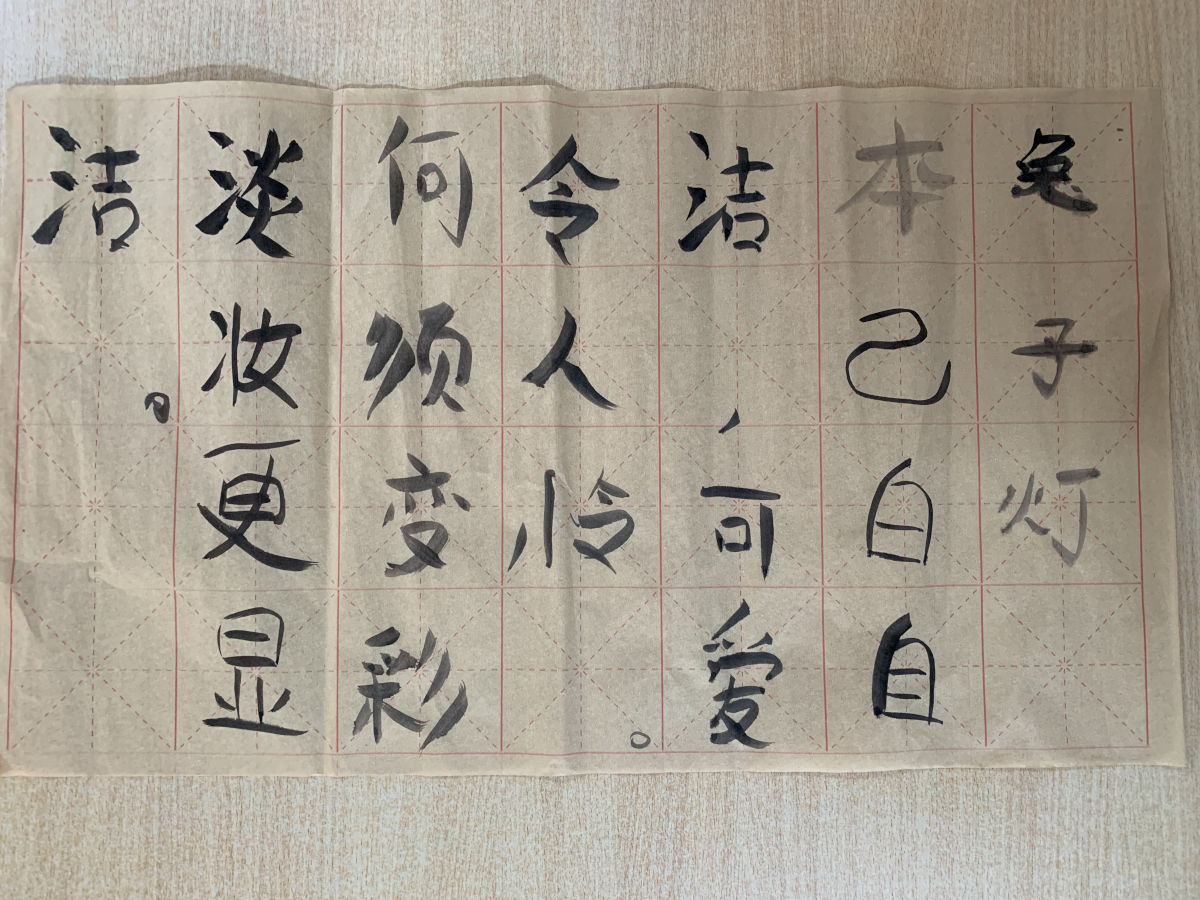 兔子灯
本己白自
洁，可爱
令人怜。
何须变彩
淡妆更显
洁。